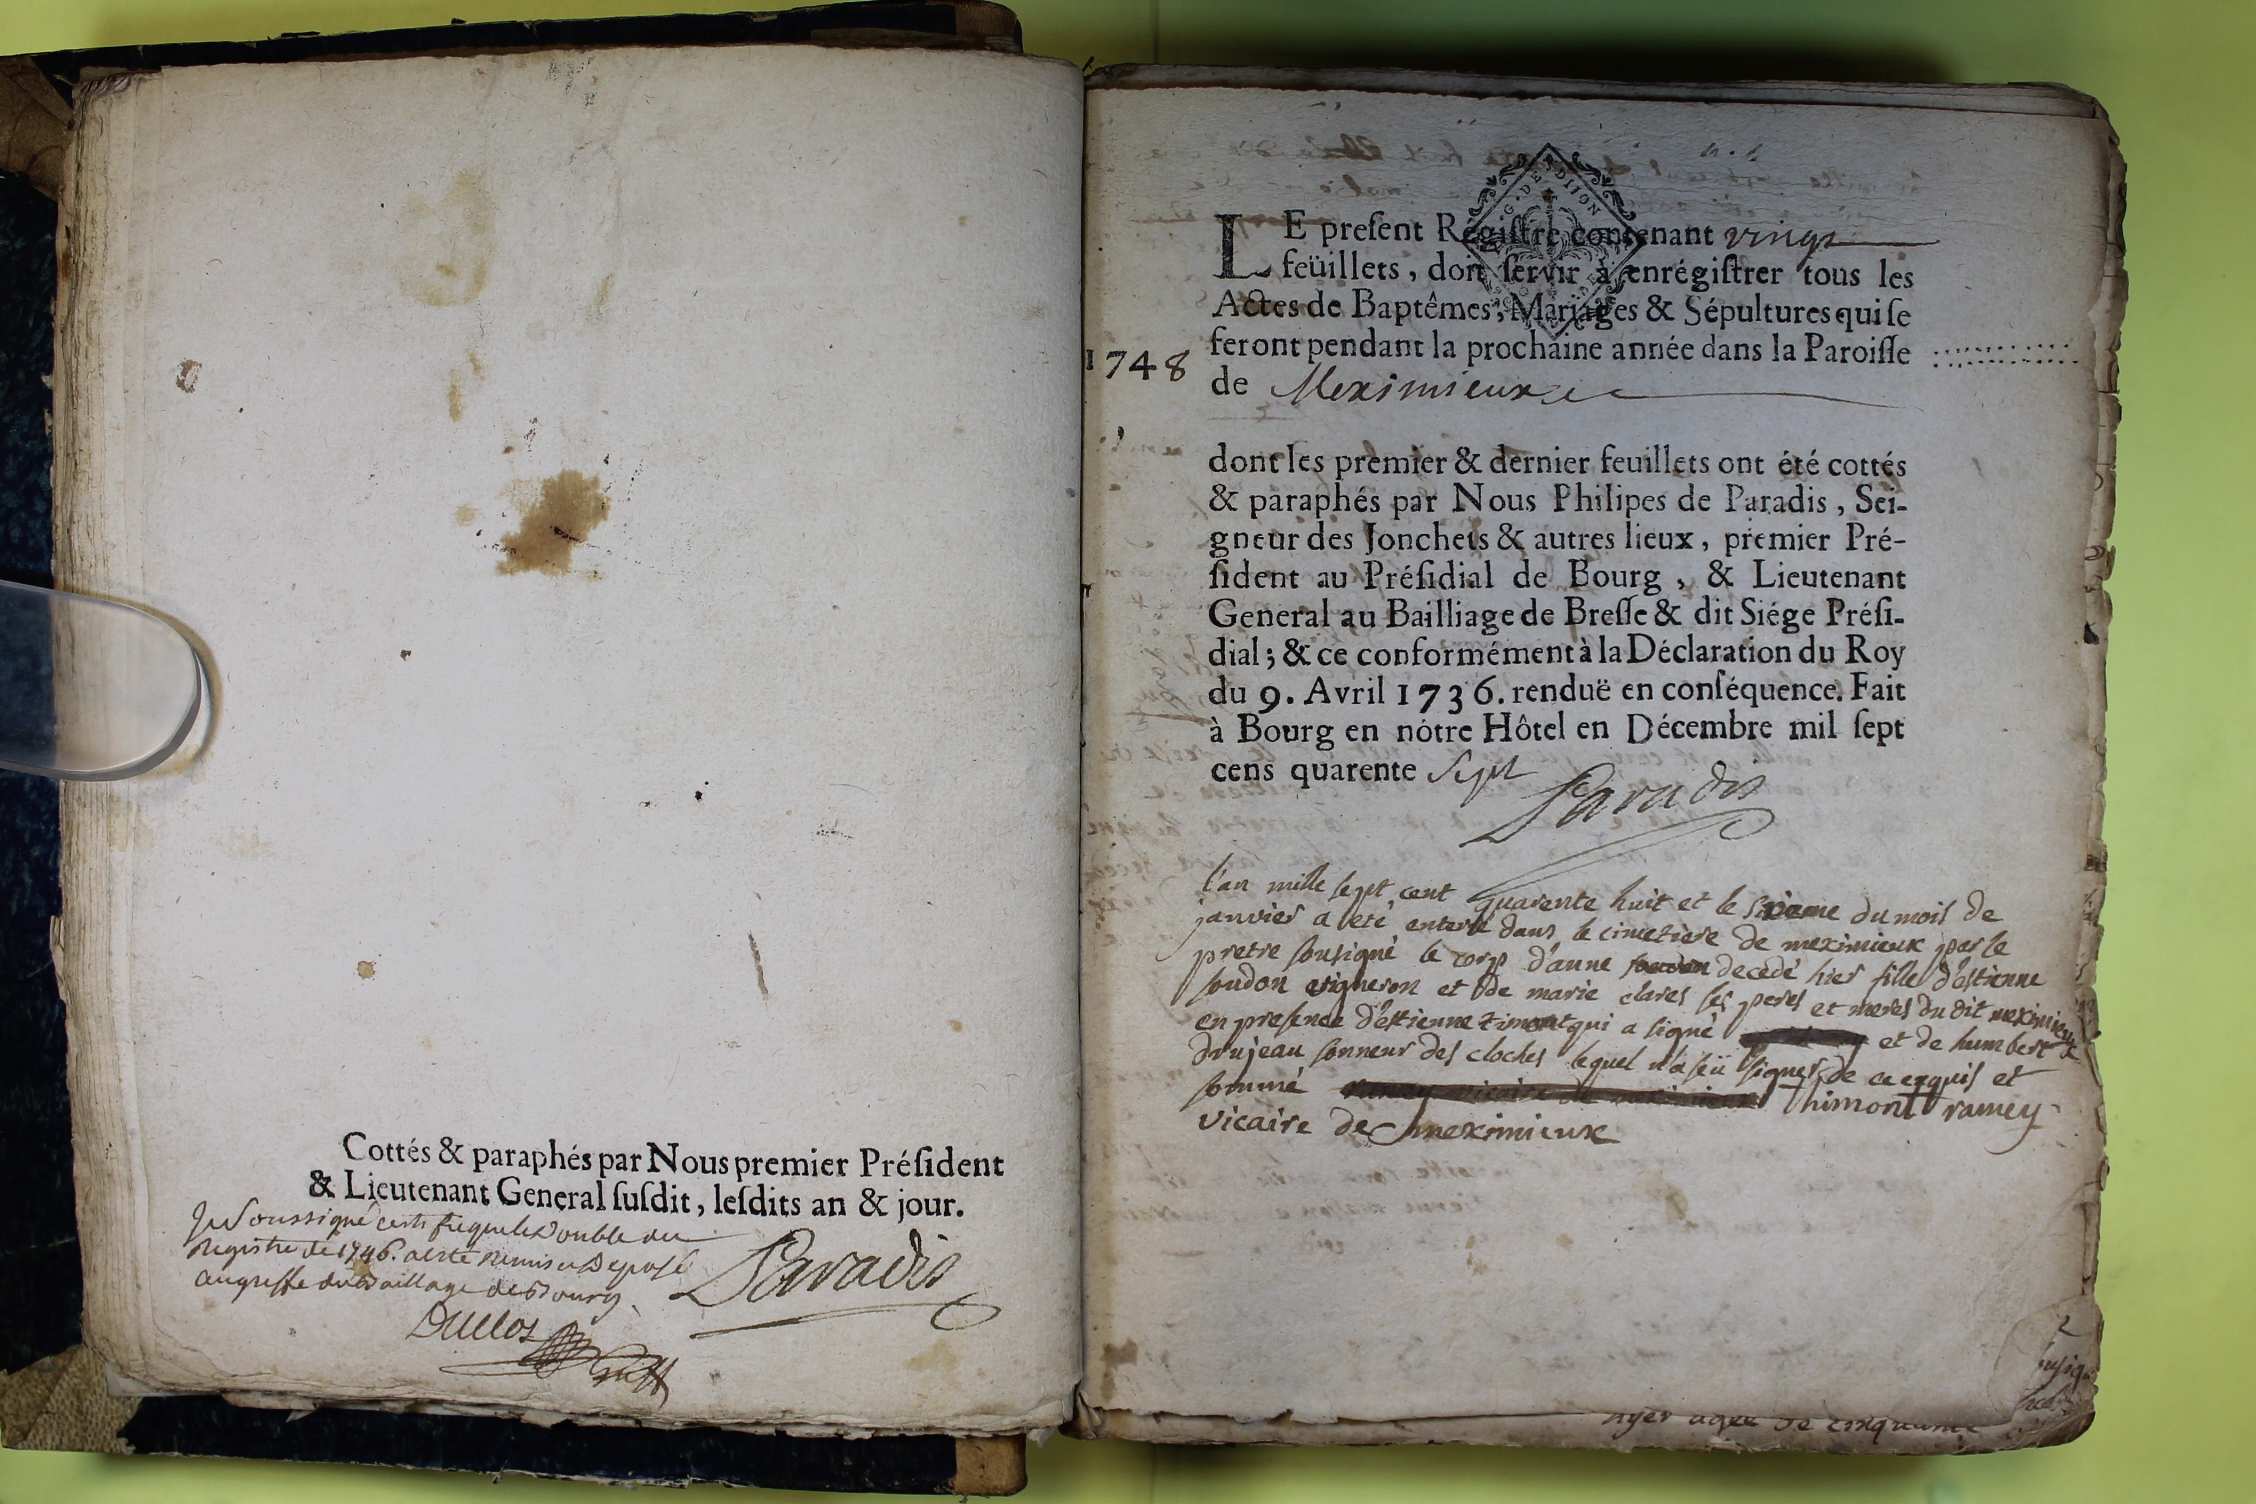 Cottés & paraphés par Nous premier Préſident
& Lieutenant General ſuſdit, leſdits an & jour.
Je Soussigné certifie que le Double du
Registre de 1746. a esté Remis et Deposé
au greffe du Baillage de Bourg
Paradis
Duclos
Greff
G. DE DIJON
LE preſent Régiſtre contenant vingt
feüillets, doit ſervir à enrégiſtrer tous les
Actes de Baptêmes, Mariages & Sépultures qui ſe
feront pendant la prochaine année dans la Paroiſſe
1748
de Meximieux
dont les premier & dernier feuillets ont été cottés
& paraphés par Nous Philipes de Paradis, Sei-
gneur des Jonchets & autres lieux, premier Pré-
ſident au Préſidial de Bourg, & Lieutenant
General au Bailliage de Breſſe & dit Siége Préſi-
dial; & ce conformément à la Déclaration du Roy
du 9. Avril 1736. renduë en conſéquence. Fait
à Bourg en nôtre Hôtel en Décembre mil ſept
cens quarente Sept
Paradis
l'an mille sept cent quarente huit et le sixieme du mois de
janvier a eté enterré dans le cimetiere de meximieux par le
pretre sousigné le corp d'anne decedé hier fille d'estienne
soudon vigneron et de marie clares ses peres et meres du dit meximieux
en presence d'estienne timont qui a signé et de humbert
drujeau sonneur des cloches lequel n'a seü signer de ce enquis et
sommé Thimont ramey
vicaire de meximieux
2
hyer agée de cinquante